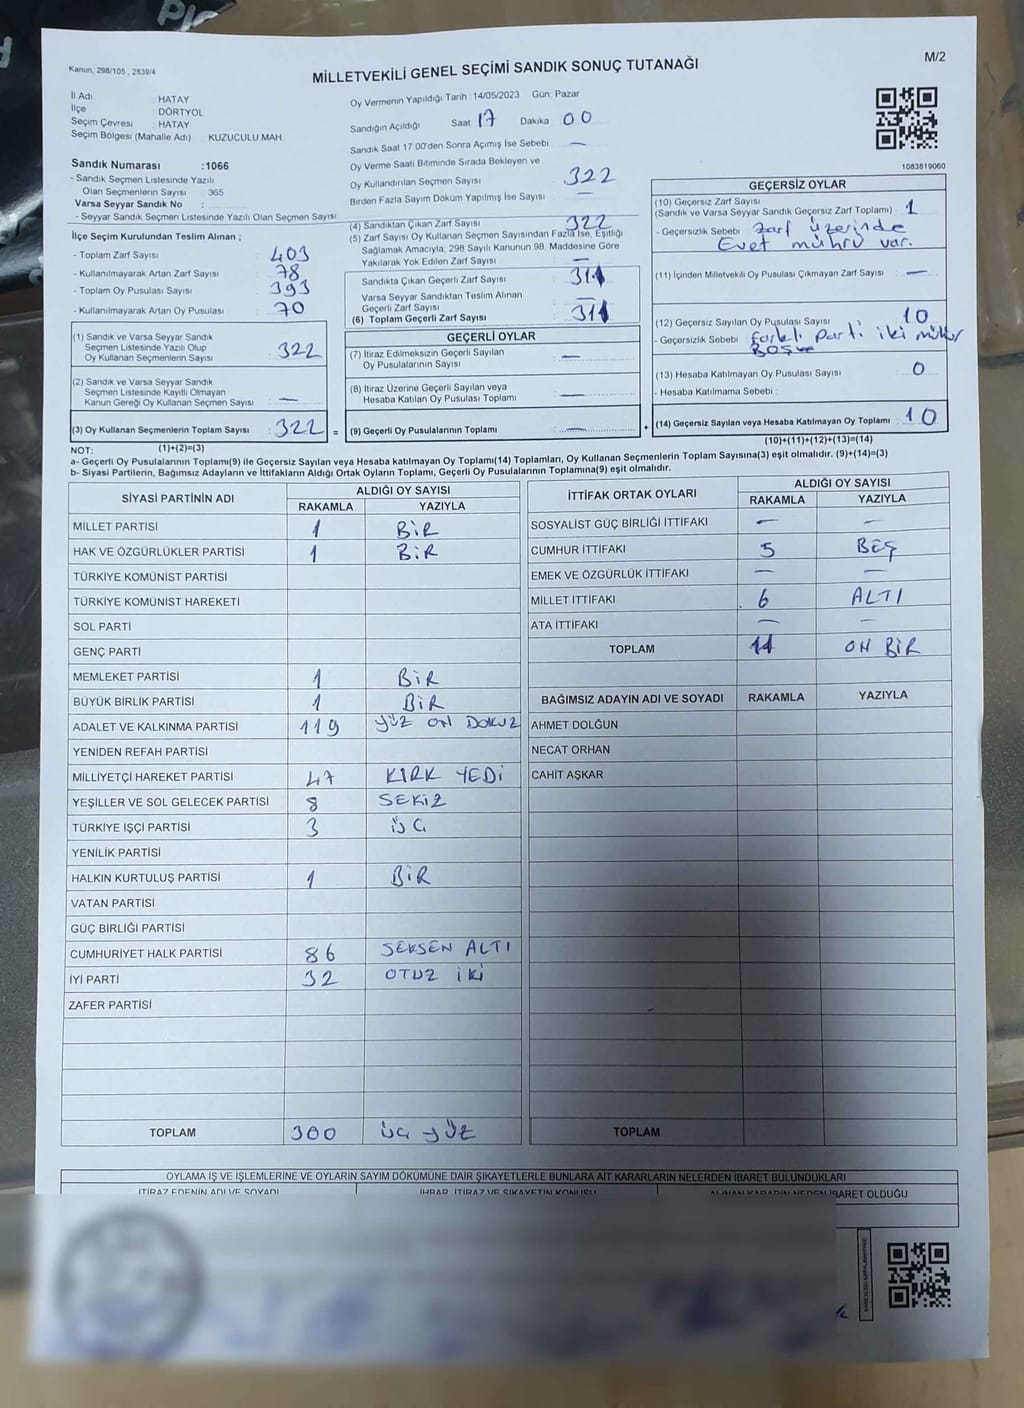 Kanun, 298/105 , 2839/4
MİLLETVEKİLİ GENEL SEÇİMİ SANDIK SONUÇ TUTANAĞI
M/2
İl Adı HATAY
İlçe DÖRTYOL
Seçim Çevresi HATAY
Seçim Bölgesi (Mahalle Adı) KUZUCULU MAH.
Sandık Numarası :1066
- Sandık Seçmen Listesinde Yazılı
Olan Seçmenlerin Sayısı : 365
Varsa Seyyar Sandık No :
- Seyyar Sandık Seçmen Listesinde Yazılı Olan Seçmen Sayısı :
İlçe Seçim Kurulundan Teslim Alınan ;
- Toplam Zarf Sayısı : 403
- Kullanılmayarak Artan Zarf Sayısı : 78
- Toplam Oy Pusulası Sayısı : 393
- Kullanılmayarak Artan Oy Pusulası : 70
(1) Sandık ve Varsa Seyyar Sandık
Seçmen Listesinde Yazılı Olup
Oy Kullanan Seçmenlerin Sayısı : 322
(2) Sandık ve Varsa Seyyar Sandık
Seçmen Listesinde Kayıtlı Olmayan
Kanun Gereği Oy Kullanan Seçmen Sayısı : —
(3) Oy Kullanan Seçmenlerin Toplam Sayısı : 322 =
Oy Vermenin Yapıldığı Tarih :14/05/2023 Gün: Pazar
Sandığın Açıldığı Saat : 17 Dakika 00
Sandık Saat 17:00'den Sonra Açılmış İse Sebebi : —
Oy Verme Saati Bitiminde Sırada Bekleyen ve
Oy Kullandırılan Seçmen Sayısı : 322
Birden Fazla Sayım Döküm Yapılmış İse Sayısı : —
(4) Sandıktan Çıkan Zarf Sayısı : 322
(5) Zarf Sayısı Oy Kullanan Seçmen Sayısından Fazla İse, Eşitliği
Sağlamak Amacıyla; 298 Sayılı Kanunun 98. Maddesine Göre
Yakılarak Yok Edilen Zarf Sayısı : —
Sandıkta Çıkan Geçerli Zarf Sayısı : 311
Varsa Seyyar Sandıktan Teslim Alınan
Geçerli Zarf Sayısı : —
(6) Toplam Geçerli Zarf Sayısı : 311
GEÇERLİ OYLAR
(7) İtiraz Edilmeksizin Geçerli Sayılan
Oy Pusulalarının Sayısı : —
(8) İtiraz Üzerine Geçerli Sayılan veya
Hesaba Katılan Oy Pusulası Toplamı : —
(9) Geçerli Oy Pusulalarının Toplamı : — +
1083819060
GEÇERSİZ OYLAR
(10) Geçersiz Zarf Sayısı
(Sandık ve Varsa Seyyar Sandık Geçersiz Zarf Toplamı) : 1
- Geçersizlik Sebebi : Zarf üzerinde
Evet mührü var.
(11) İçinden Milletvekili Oy Pusulası Çıkmayan Zarf Sayısı : —
(12) Geçersiz Sayılan Oy Pusulası Sayısı : 10
- Geçersizlik Sebebi : Farklı Parti iki mühür
BOŞ
(13) Hesaba Katılmayan Oy Pusulası Sayısı : 0
- Hesaba Katılmama Sebebi :
(14) Geçersiz Sayılan veya Hesaba Katılmayan Oy Toplamı : 10
(10)+(11)+(12)+(13)=(14)
NOT: (1)+(2)=(3)
a- Geçerli Oy Pusulalarının Toplamı(9) ile Geçersiz Sayılan veya Hesaba katılmayan Oy Toplamı(14) Toplamları, Oy Kullanan Seçmenlerin Toplam Sayısına(3) eşit olmalıdır. (9)+(14)=(3)
b- Siyasi Partilerin, Bağımsız Adayların ve İttifakların Aldığı Ortak Oyların Toplamı, Geçerli Oy Pusulalarının Toplamına(9) eşit olmalıdır.
SİYASİ PARTİNİN ADI ALDIĞI OY SAYISI
RAKAMLA YAZIYLA
MİLLET PARTİSİ 1 BİR
HAK VE ÖZGÜRLÜKLER PARTİSİ 1 BİR
TÜRKİYE KOMÜNİST PARTİSİ
TÜRKİYE KOMÜNİST HAREKETİ
SOL PARTİ
GENÇ PARTİ
MEMLEKET PARTİSİ 1 BİR
BÜYÜK BİRLİK PARTİSİ 1 BİR
ADALET VE KALKINMA PARTİSİ 119 YÜZ ON DOKUZ
YENİDEN REFAH PARTİSİ
MİLLİYETÇİ HAREKET PARTİSİ 47 KIRK YEDİ
YEŞİLLER VE SOL GELECEK PARTİSİ 8 SEKİZ
TÜRKİYE İŞÇİ PARTİSİ 3 ÜÇ
YENİLİK PARTİSİ
HALKIN KURTULUŞ PARTİSİ 1 BİR
VATAN PARTİSİ
GÜÇ BİRLİĞİ PARTİSİ
CUMHURİYET HALK PARTİSİ 86 SEKSEN ALTI
İYİ PARTİ 32 OTUZ İKİ
ZAFER PARTİSİ
TOPLAM 300 ÜÇ YÜZ
İTTİFAK ORTAK OYLARI ALDIĞI OY SAYISI
RAKAMLA YAZIYLA
SOSYALİST GÜÇ BİRLİĞİ İTTİFAKI — —
CUMHUR İTTİFAKI 5 BEŞ
EMEK VE ÖZGÜRLÜK İTTİFAKI — —
MİLLET İTTİFAKI 6 ALTI
ATA İTTİFAKI — —
TOPLAM 11 ON BİR
BAĞIMSIZ ADAYIN ADI VE SOYADI RAKAMLA YAZIYLA
AHMET DOLĞUN
NECAT ORHAN
CAHİT AŞKAR
TOPLAM
OYLAMA İŞ VE İŞLEMLERİNE VE OYLARIN SAYIM DÖKÜMÜNE DAİR ŞİKAYETLERLE BUNLARA AİT KARARLARIN NELERDEN İBARET BULUNDUKLARI
İTİRAZ EDENİN ADI VE SOYADI İHBAR, İTİRAZ VE ŞİKAYETİN KONUSU ALINAN KARARIN NEDEN İBARET OLDUĞU